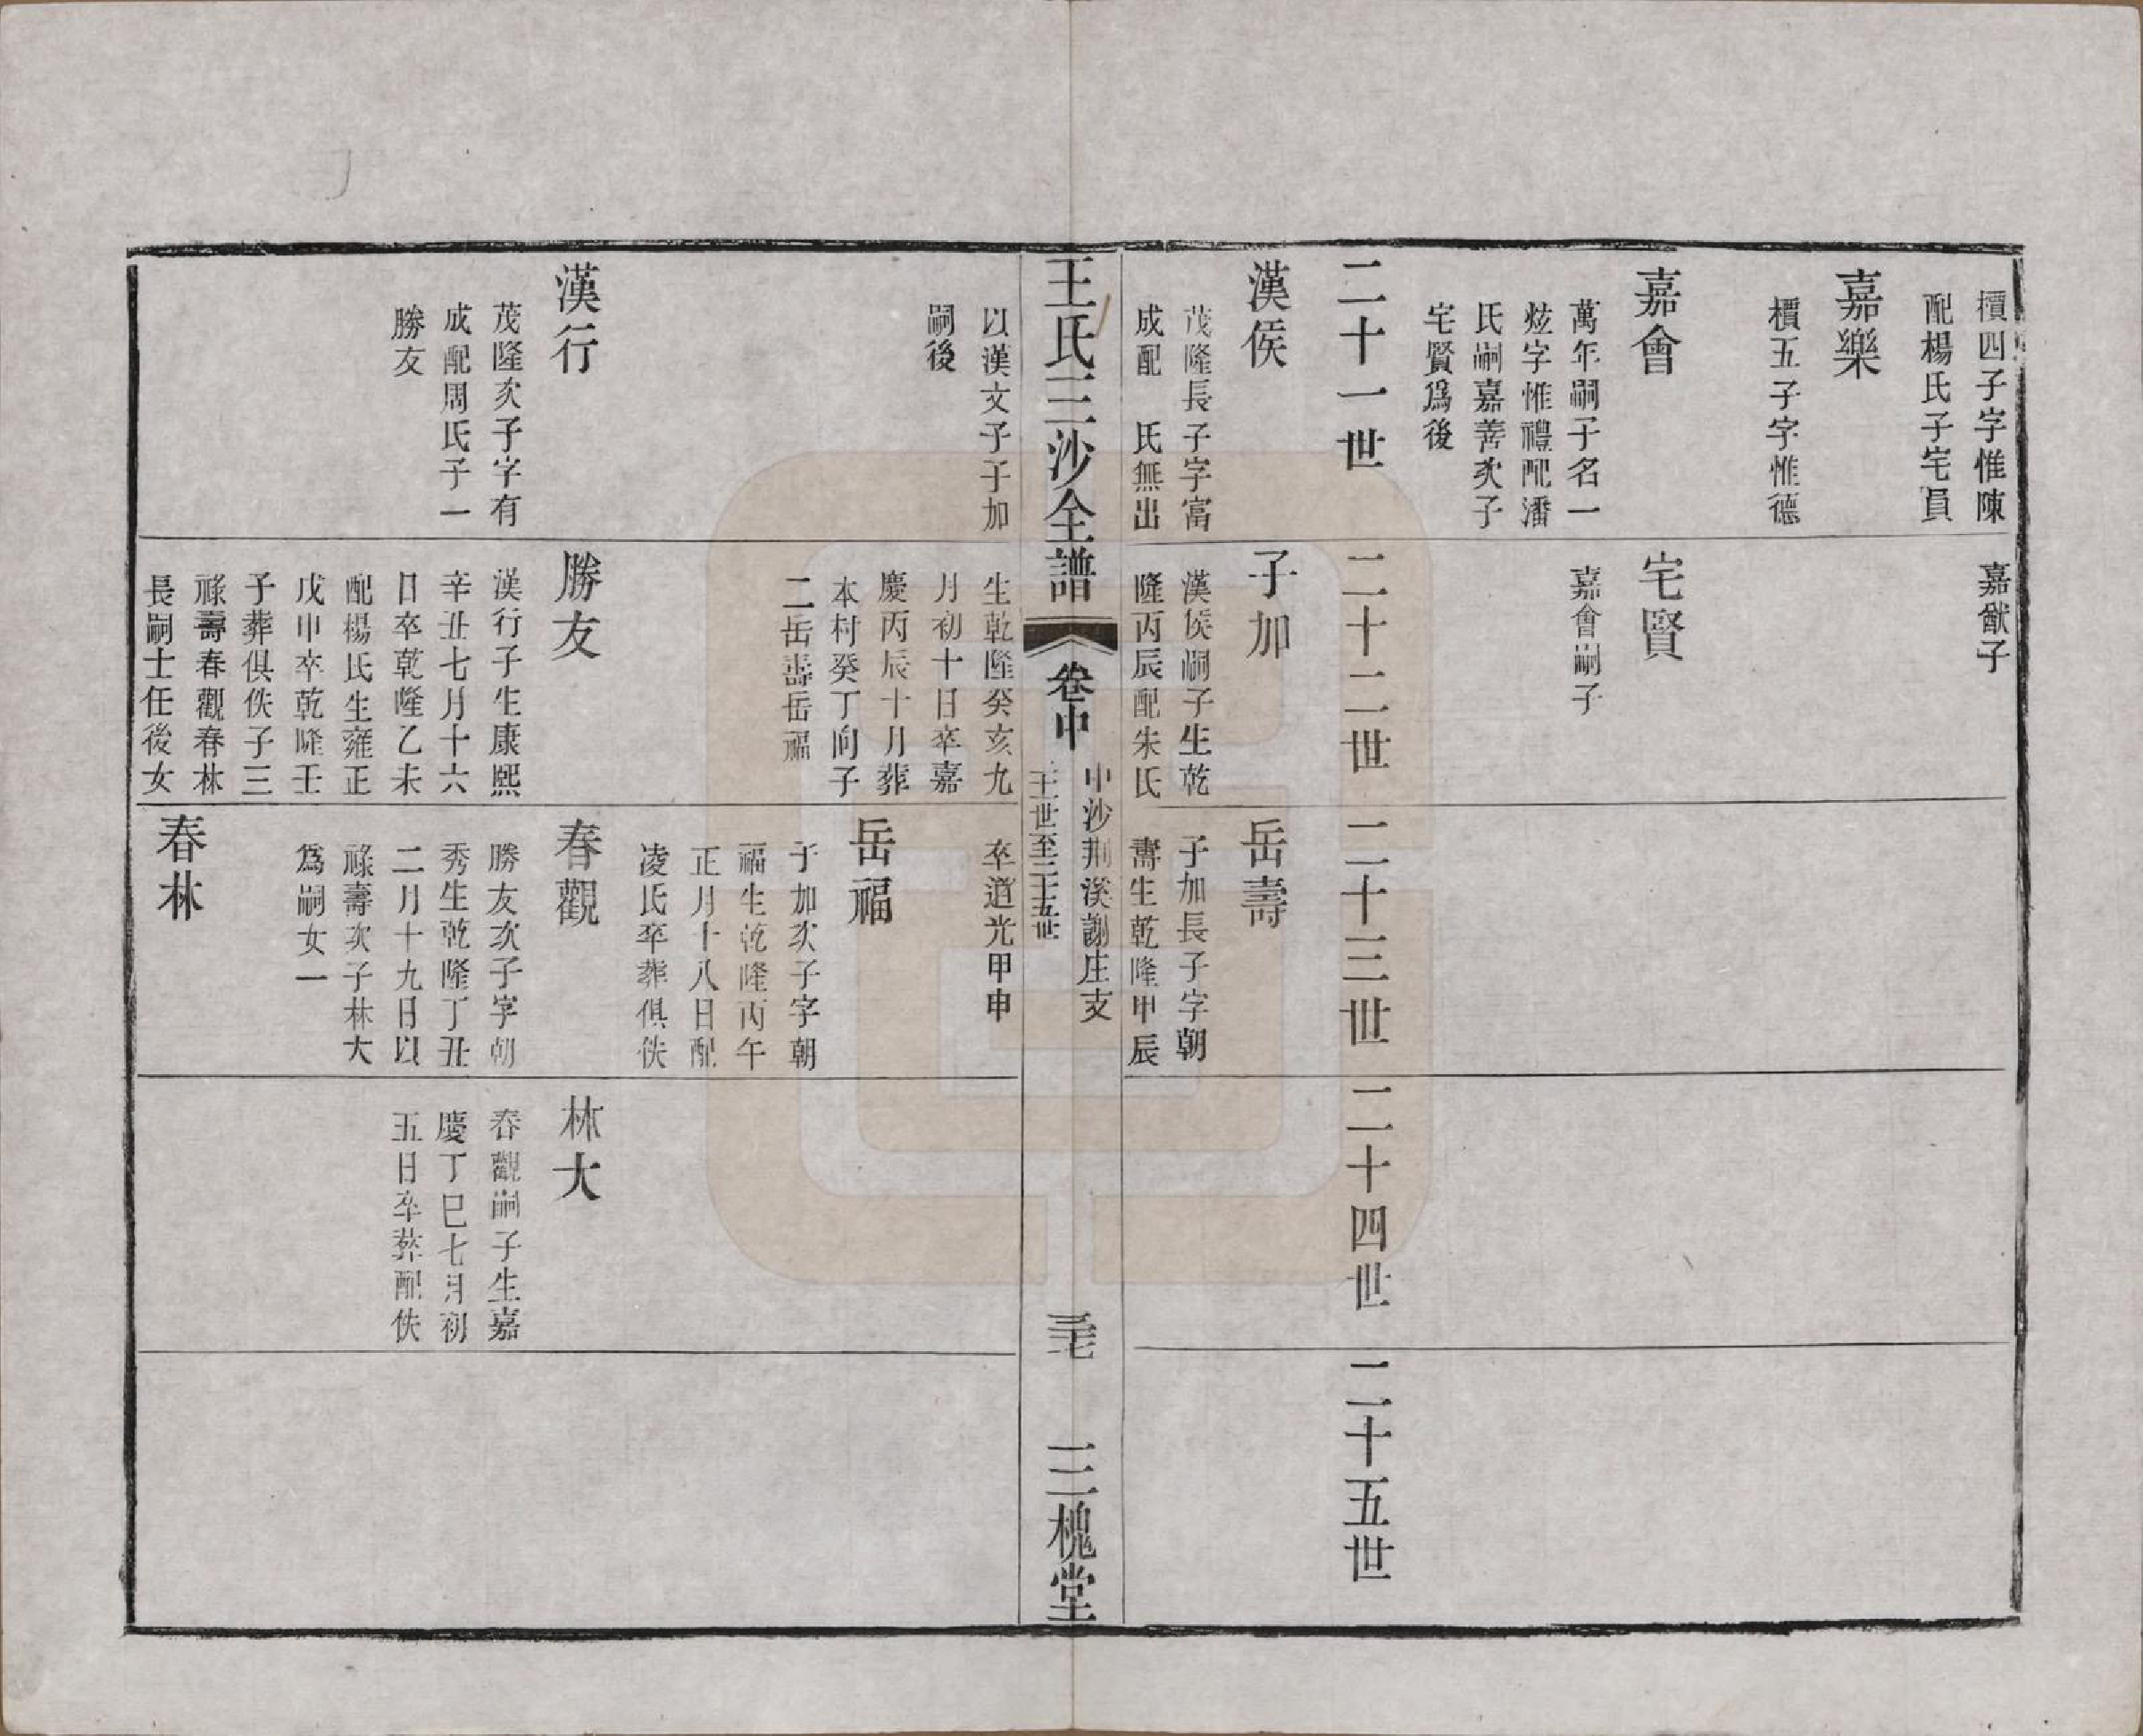 檟四子字惟陳
配楊氏子宅員
嘉樂
檟五子字惟德
嘉會
萬年嗣子名一
炫字惟禮配潘
氏嗣嘉善次子
宅賢爲後
嘉猷子
宅賢
嘉會嗣子
二十一世
二十二世
二十三世
二十四世
二十五世
漢侯
茂隆長子字富
成配 氏無出
子加
漢侯嗣子生乾
隆丙辰配朱氏
岳壽
子加長子字朝
壽生乾隆甲辰
王氏三沙全譜
卷中
中沙荆溪謝庄支
世至二十五世
三槐堂
以漢文子子加
嗣後
生乾隆癸亥九
月初十日卒嘉
慶丙辰十月葬
本村癸丁向子
二岳壽岳福
卒道光甲申
岳福
子加次子字朝
福生乾隆丙午
正月十八日配
凌氏卒葬俱佚
漢行
茂隆次子字有
成配周氏子一
勝友
勝友
漢行子生康熙
辛丑七月十六
日卒乾隆乙未
配楊氏生雍正
戊申卒乾隆壬
子葬俱佚子三
祿壽春觀春林
長嗣士任後女
春觀
勝友次子字朝
秀生乾隆丁丑
二月十九日以
祿壽次子林大
爲嗣女一
春林
林大
春觀嗣子生嘉
慶丁巳七月初
五日卒葬配佚